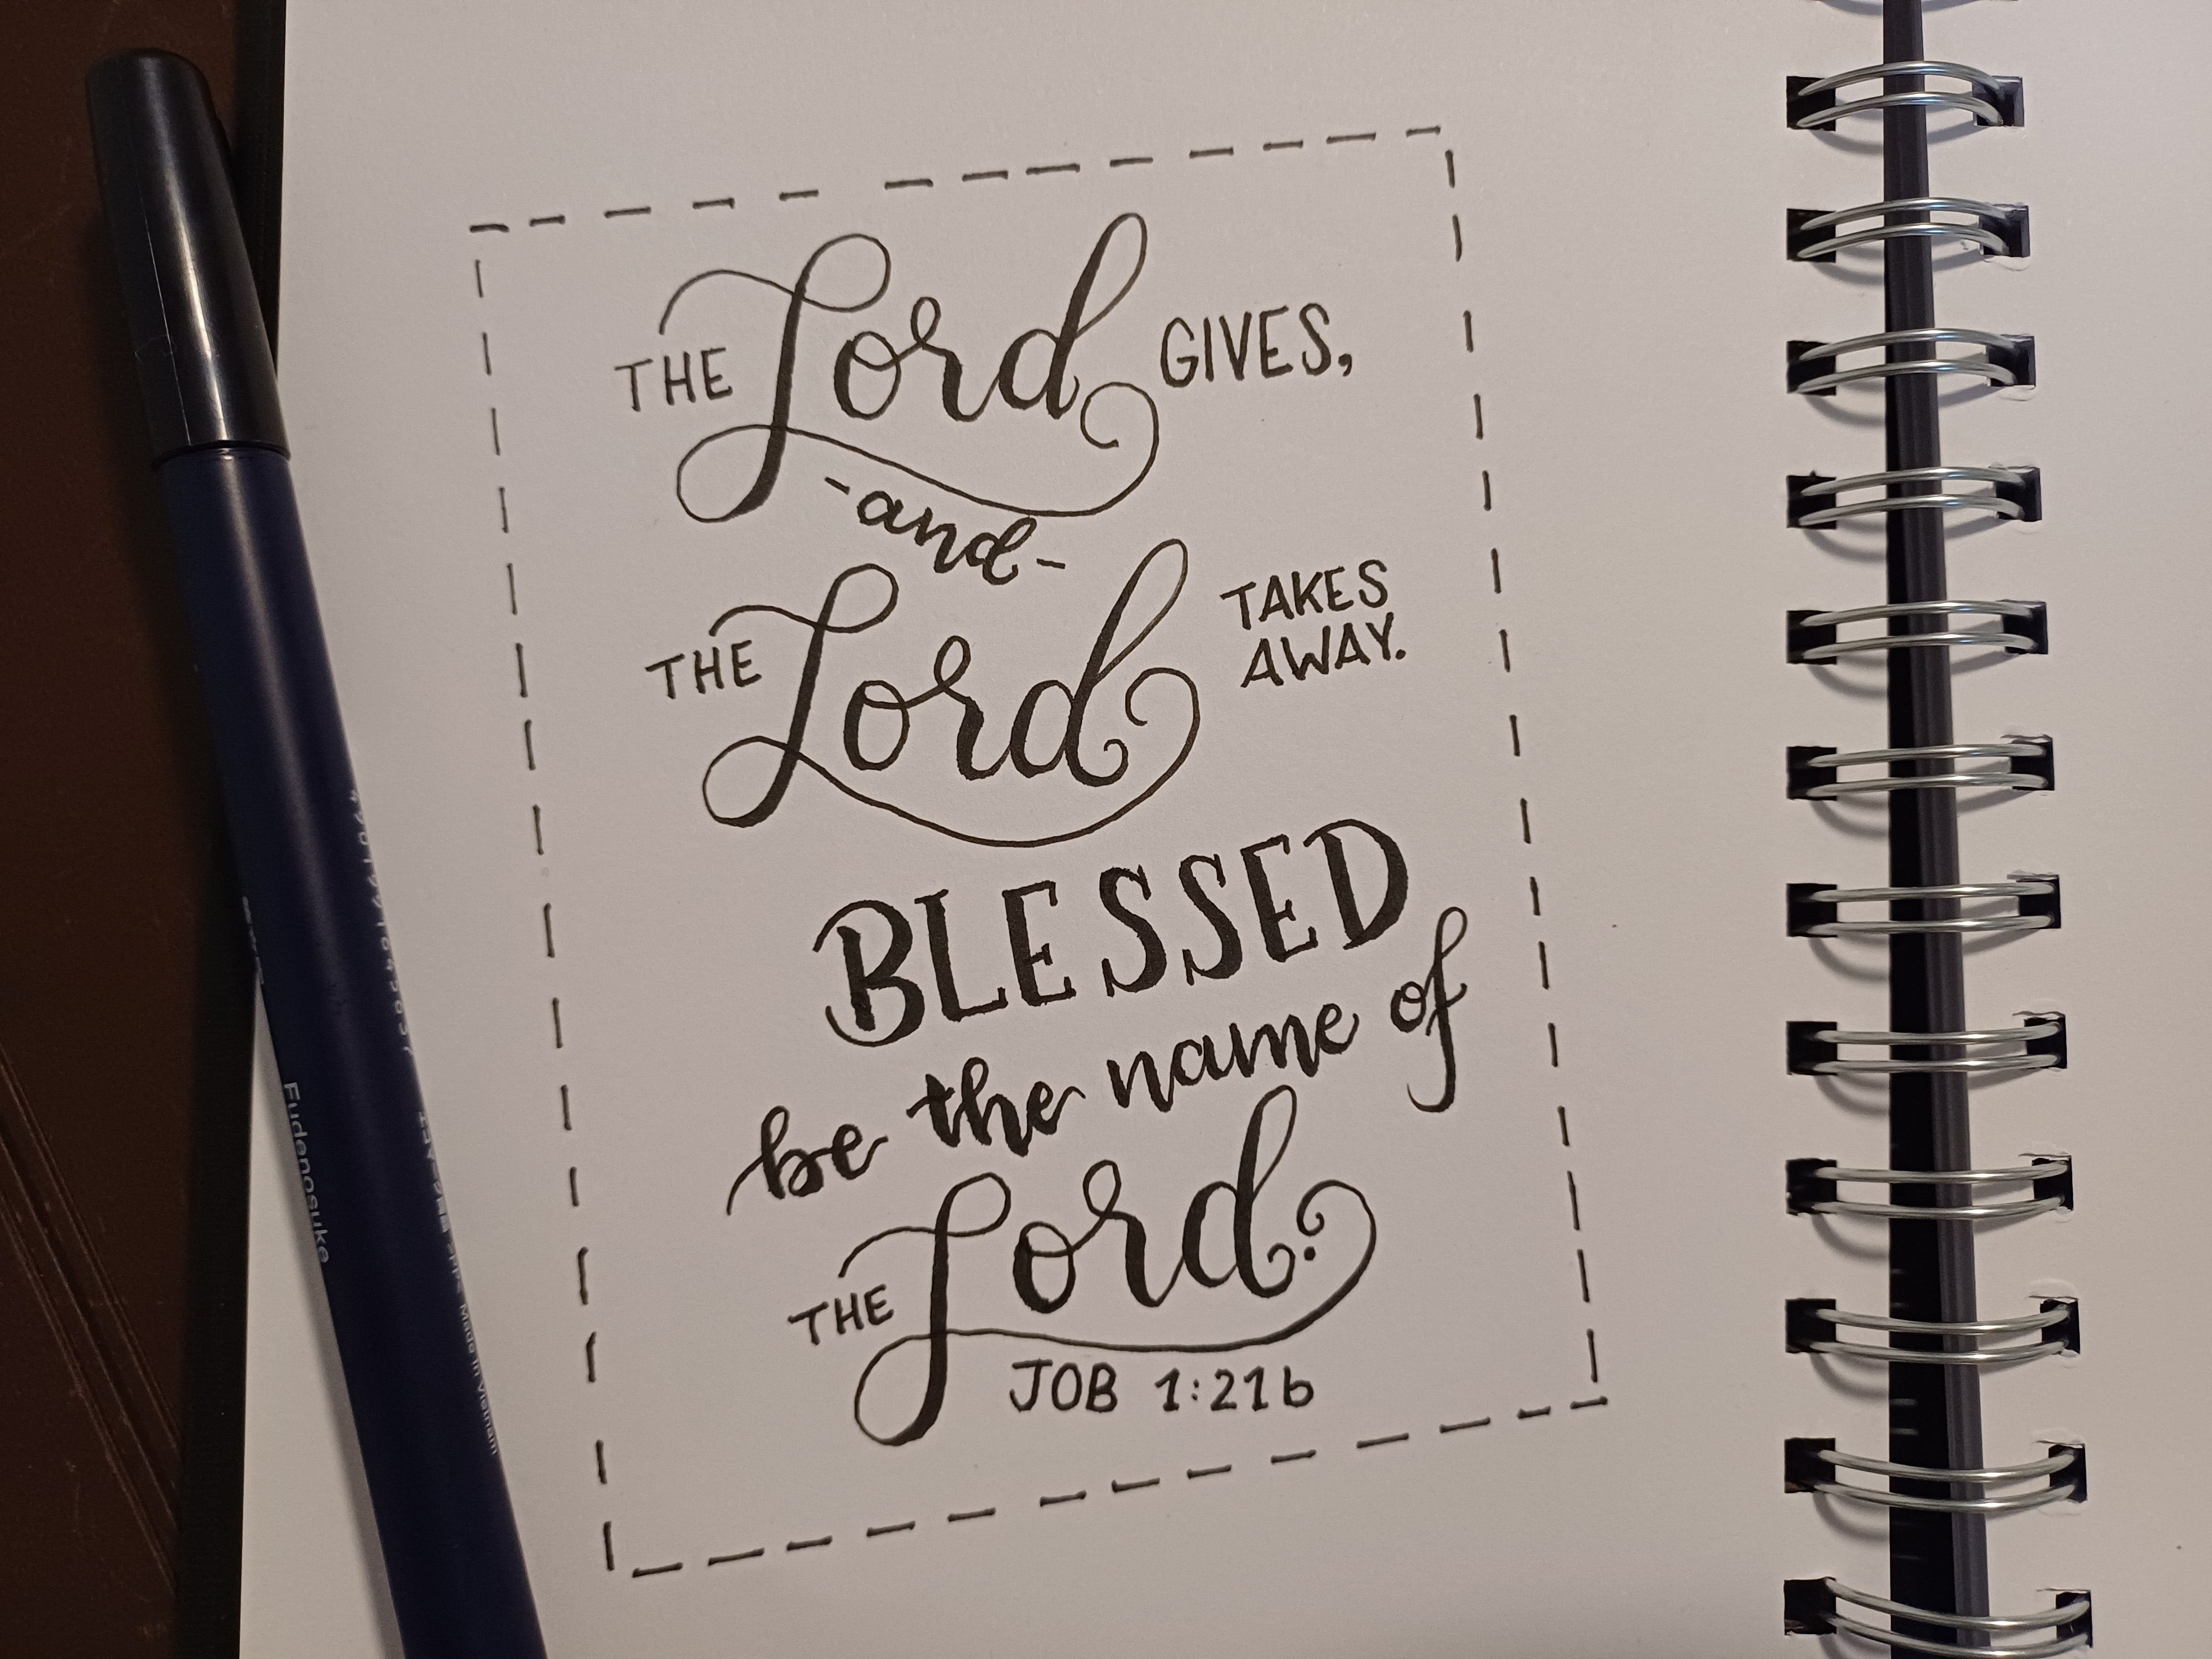 THE Lord GIVES,
-and-
THE Lord TAKES
AWAY.
BLESSED
be the name of
THE Lord.
JOB 1:21b
Fudenosuke
Made in Vietnam